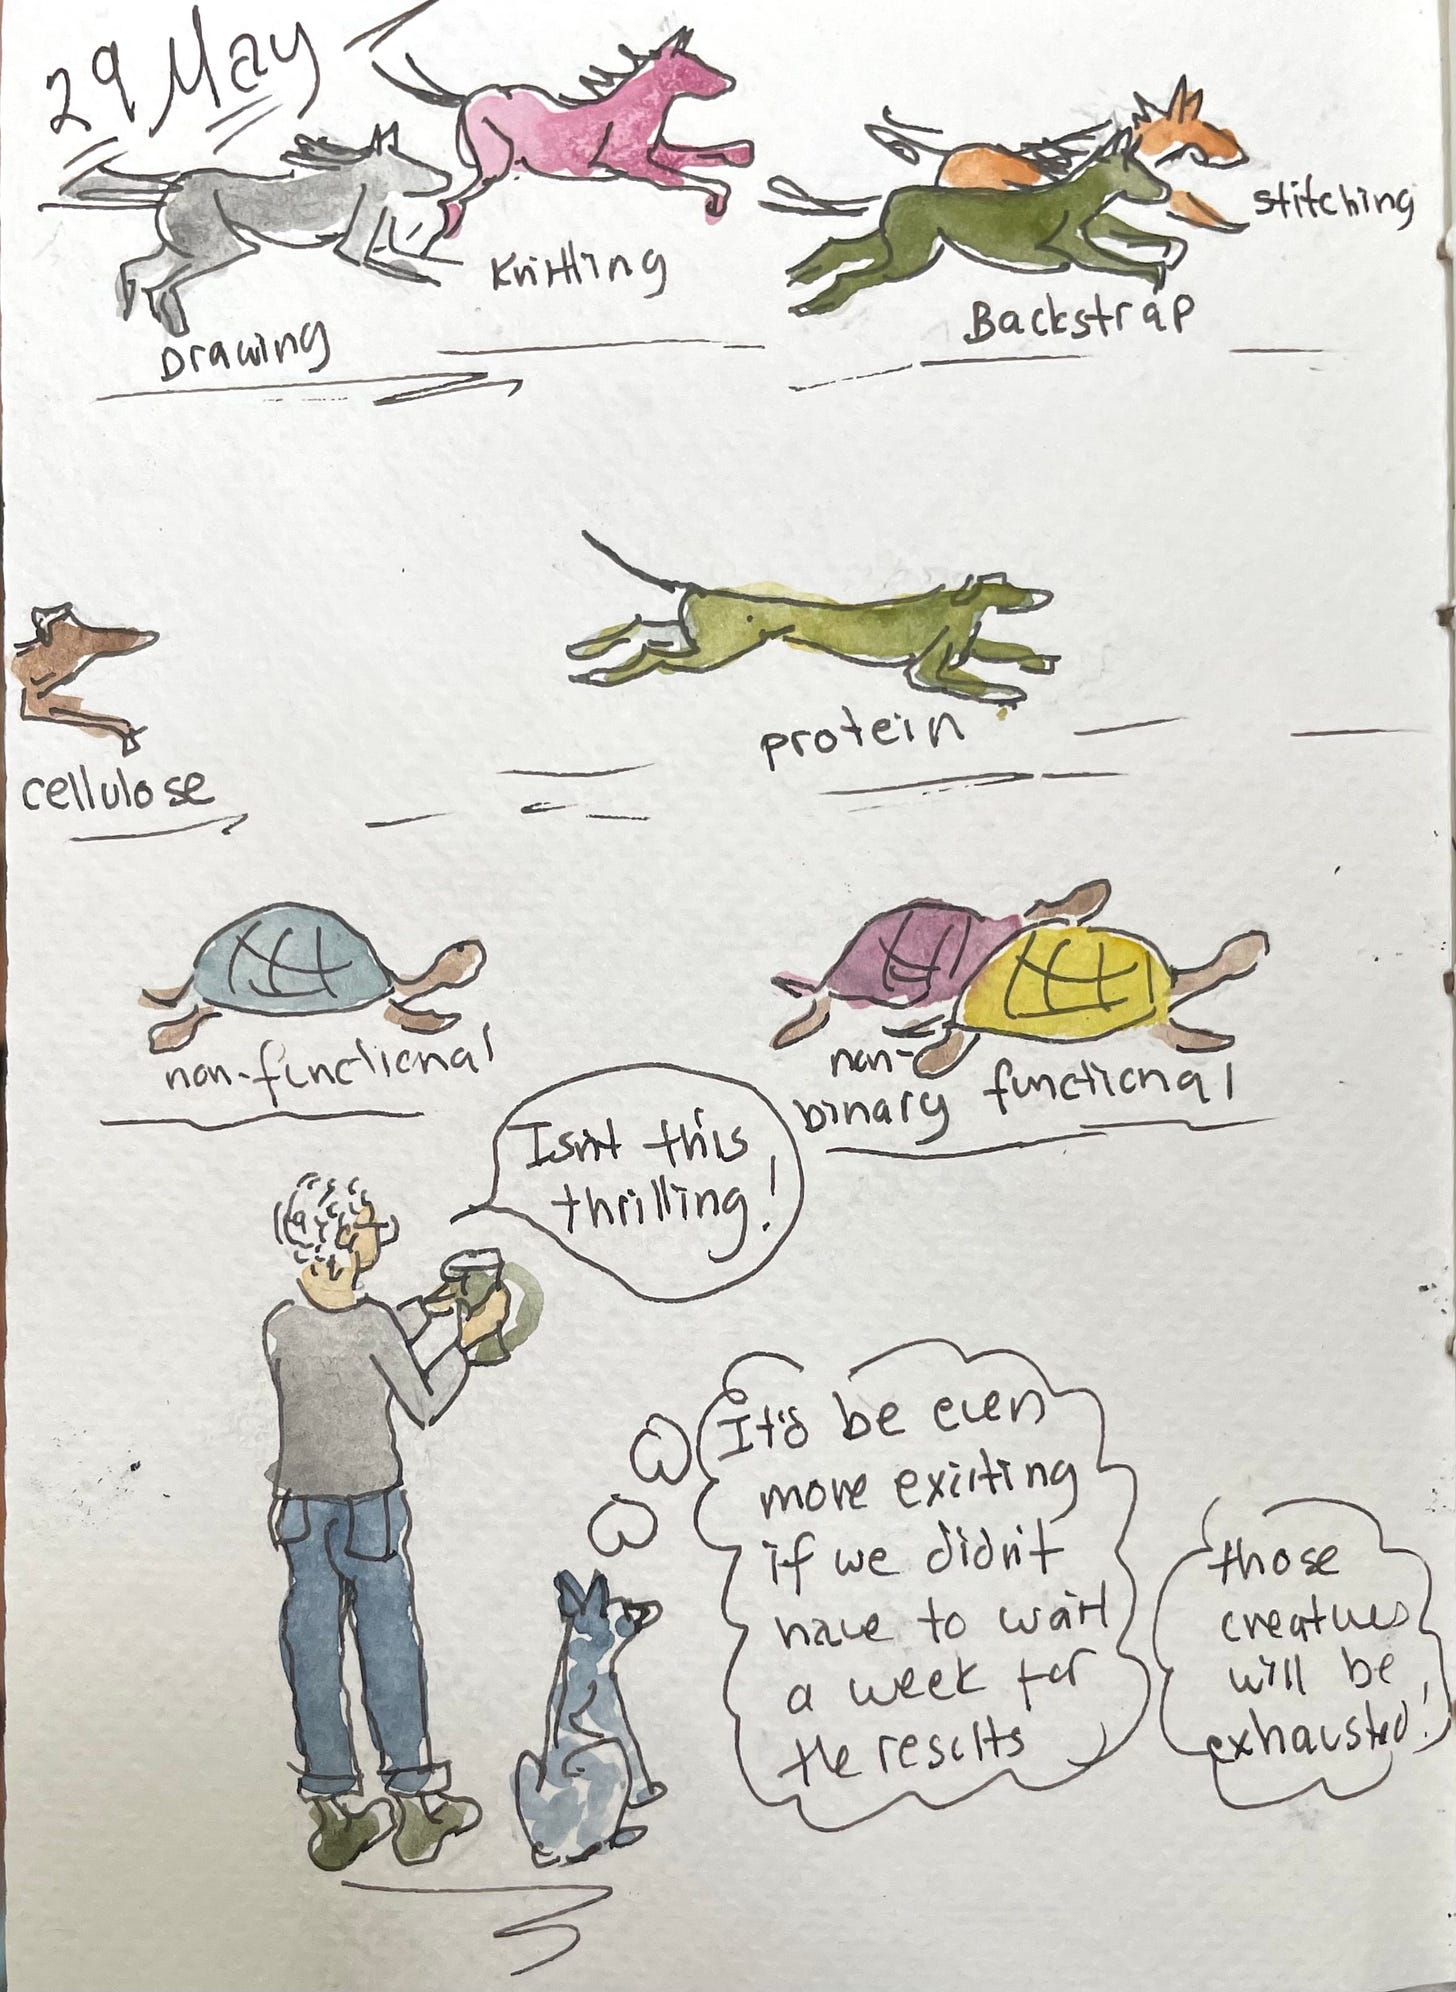 29 May
Knitting
stitching
Backstrap
Drawing
protein
cellulose
non-functional
non-
binary
functional
Isn't this
thrilling!
It'd be even
more exicting
if we didn't
have to wait
a week for
the results
those
creatures
will be
exhausted!